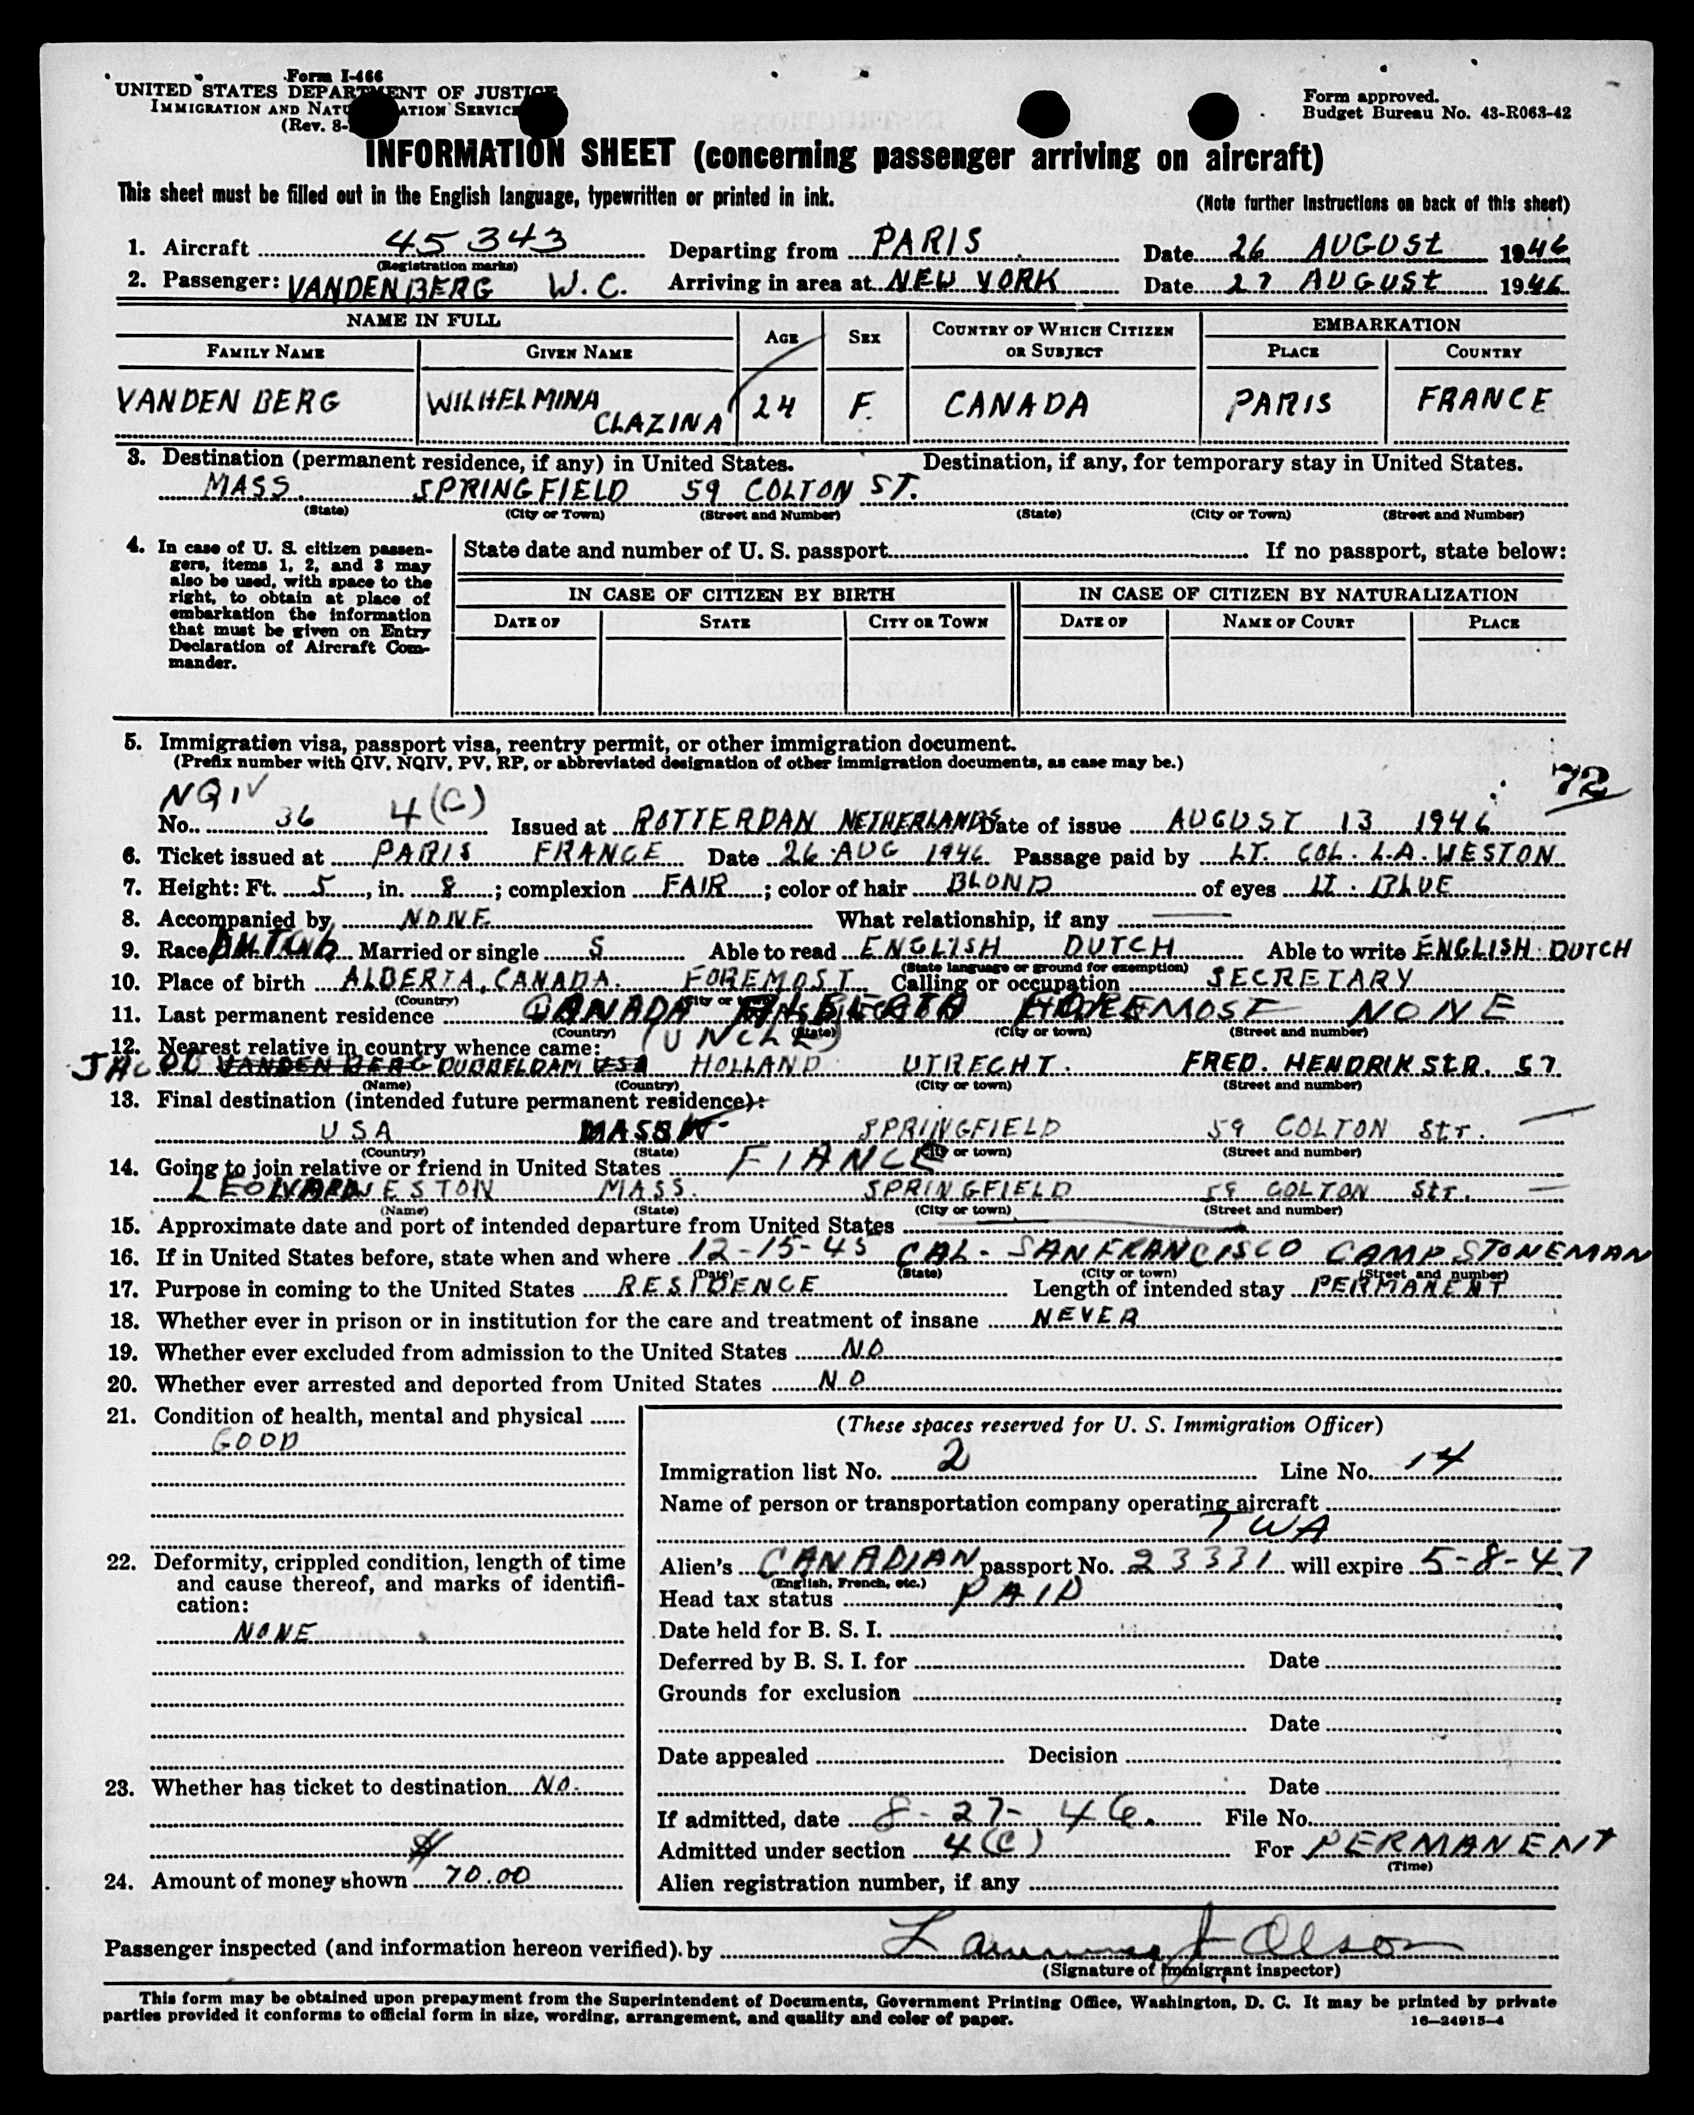 Form I-466
UNITED STATES DEPARTMENT OF JUSTICE
IMMIGRATION AND NATURALIZATION SERVICE
(Rev. 8-
Form approved.
Budget Bureau No. 43-R063-42
INFORMATION SHEET (concerning passenger arriving on aircraft)
This sheet must be filled out in the English language, typewritten or printed in ink.
(Note further instructions on back of this sheet)
1. Aircraft 45343 Departing from PARIS Date 26 AUGUSt 1946
(Registration marks)
2. Passenger: VANDEN BERG W.C. Arriving in area at NEW YORK Date 27 AUGUSt 1946
NAME IN FULL AGE SEX COUNTRY OF WHICH CITIZEN OR SUBJECT EMBARKATION
FAMILY NAME GIVEN NAME PLACE COUNTRY
VANDEN BERG WILHELMINA CLAZINA 24 F. CANADA PARIS FRANCE
3. Destination (permanent residence, if any) in United States. Destination, if any, for temporary stay in United States.
MASS. SPRINGFIELD 59 COLTON ST.
(State) (City or Town) (Street and Number) (State) (City or Town) (Street and Number)
4. In case of U. S. citizen passen-
gers, items 1, 2, and 3 may
also be used, with space to the
right, to obtain at place of
embarkation the information
that must be given on Entry
Declaration of Aircraft Com-
mander.
State date and number of U. S. passport If no passport, state below:
IN CASE OF CITIZEN BY BIRTH IN CASE OF CITIZEN BY NATURALIZATION
DATE OF STATE CITY OR TOWN DATE OF NAME OF COURT PLACE
5. Immigration visa, passport visa, reentry permit, or other immigration document.
(Prefix number with QIV, NQIV, PV, RP, or abbreviated designation of other immigration documents, as case may be.)
72
NQIV
No. 36 4(C) Issued at ROTTERDAN NETHERLANDS Date of issue AUGUST 13 1946
6. Ticket issued at PARIS FRANCE Date 26 AUG 1946 Passage paid by LT. COL. L.A. WESTON
7. Height: Ft. 5, in. 8; complexion FAIR; color of hair BLOND of eyes LT. BLUE
8. Accompanied by NONE What relationship, if any
9. Race DUTCH Married or single S Able to read ENGLISH DUTCH Able to write ENGLISH DUTCH
(State language or ground for exemption)
10. Place of birth ALBERTA, CANADA. FOREMOST Calling or occupation SECRETARY
(Country) (City or town)
11. Last permanent residence CANADA ALBERTA FOREMOST NONE
(Country) (State) (City or town) (Street and number)
12. Nearest relative in country whence came: (UNCLE)
JACOB VANDEN BERG DUBBELDAM USA HOLLAND UTRECHT. FRED. HENDRIK STR. 57
(Name) (Country) (City or town) (Street and number)
13. Final destination (intended future permanent residence):
USA MASS SPRINGFIELD 59 COLTON Str.
(Country) (State) (City or town) (Street and number)
14. Going to join relative or friend in United States FIANCE
LEONARD WESTON MASS. SPRINGFIELD 59 COLTON Str.
(Name) (State) (City or town) (Street and number)
15. Approximate date and port of intended departure from United States
16. If in United States before, state when and where 12-15-45 CAL- SAN FRANCISCO CAMP STONEMAN
(Date) (State) (City or town) (Street and number)
17. Purpose in coming to the United States RESIDENCE Length of intended stay PERMANENT
18. Whether ever in prison or in institution for the care and treatment of insane NEVER
19. Whether ever excluded from admission to the United States NO
20. Whether ever arrested and deported from United States NO
21. Condition of health, mental and physical
GOOD
22. Deformity, crippled condition, length of time
and cause thereof, and marks of identifi-
cation:
NONE
23. Whether has ticket to destination NO.
24. Amount of money shown $ 70.00
(These spaces reserved for U. S. Immigration Officer)
Immigration list No. 2 Line No. 14
Name of person or transportation company operating aircraft
TWA
Alien's CANADIAN passport No. 23331 will expire 5-8-47
(English, French, etc.)
Head tax status PAID
Date held for B. S. I.
Deferred by B. S. I. for Date
Grounds for exclusion
Date
Date appealed Decision
Date
If admitted, date 8-27-46. File No.
Admitted under section 4(C) For PERMANENT
(Time)
Alien registration number, if any
Passenger inspected (and information hereon verified) by J Olson
(Signature of immigrant inspector)
This form may be obtained upon prepayment from the Superintendent of Documents, Government Printing Office, Washington, D. C. It may be printed by private
parties provided it conforms to official form in size, wording, arrangement, and quality and color of paper.
16—24915-4